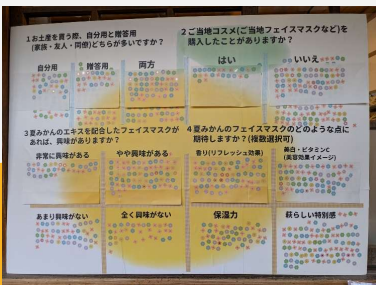 1お土産を買う際、自分用と贈答用
(家族・友人・同僚)どちらが多いですか?
自分用 贈答用 両方
2ご当地コスメ(ご当地フェイスマスクなど)を
購入したことがありますか?
はい いいえ
3夏みかんのエキスを配合したフェイスマスクが
あれば、興味がありますか?
非常に興味がある やや興味がある
あまり興味がない 全く興味がない
4夏みかんのフェイスマスクのどのような点に
期待しますか?(複数選択可)
香り(リフレッシュ効果) 美白・ビタミンC
(美容効果イメージ)
保湿力 萩らしい特別感